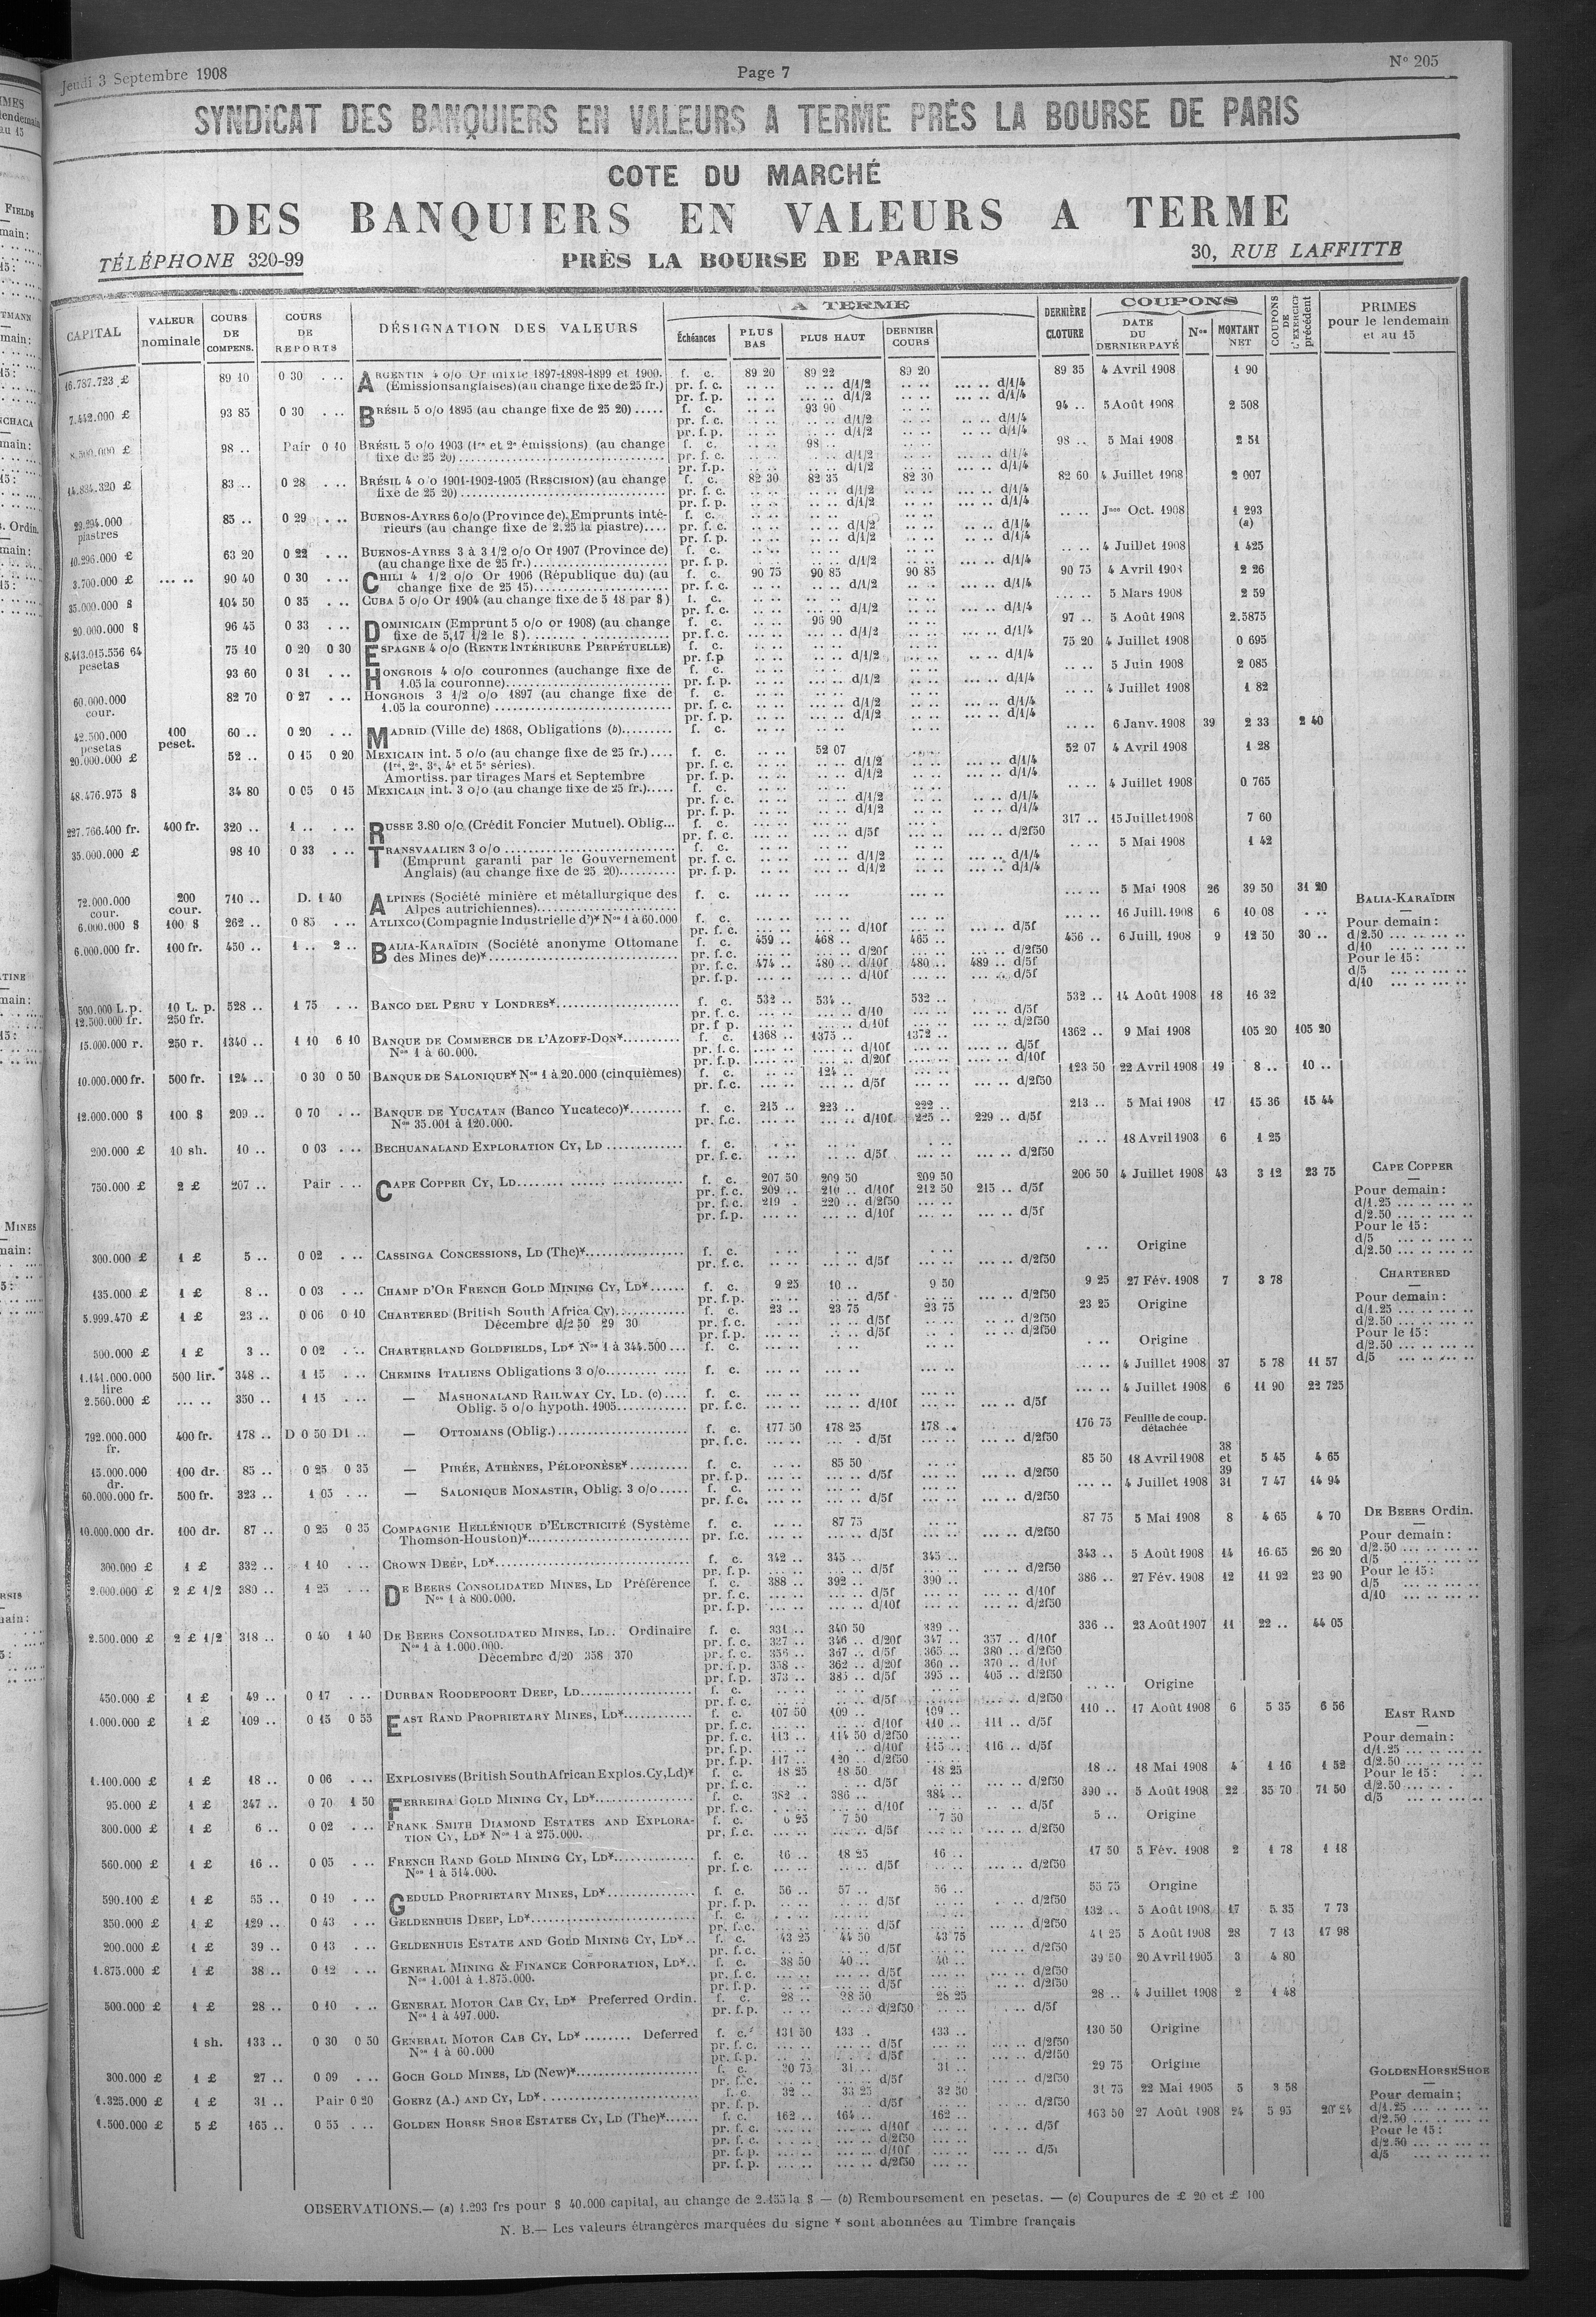 Jeudi 3 Septembre 1908
Page 7
N° 205
SYNDICAT DES BANQUIERS EN VALEURS A TERME PRÈS LA BOURSE DE PARIS
COTE DU MARCHÉ
DES BANQUIERS EN VALEURS A TERME
TÉLÉPHONE 320-99
PRÈS LA BOURSE DE PARIS
30, RUE LAFFITTE
CAPITAL
VALEUR nominale
COURS DE COMPENS.
COURS DE REPORTS
DÉSIGNATION DES VALEURS
A TERME
Échéances
PLUS BAS
PLUS HAUT
DERNIER COURS
DERNIÈRE CLOTURE
COUPONS
DATE DU DERNIER PAYÉ
Nos
MONTANT NET
COUPONS DE L'EXERCICE précédent
PRIMES pour le lendemain et au 15
16.787.723 £ 89 10 0 30 ARGENTIN 4 o/o Or mixte 1897-1898-1899 et 1900. f. c. 89 20 89 22 89 20 89 35 4 Avril 1908 1 90
(Émissions anglaises) (au change fixe de 25 fr.) pr. f. c. d/1/2 d/1/4
pr. f. p. d/1/2 d/1/4
7.442.000 £ 93 85 0 30 BRÉSIL 5 o/o 1895 (au change fixe de 25 20) f. c. 93 90 94 .. 5 Août 1908 2 508
pr. f. c. d/1/2 d/1/4
pr. f. p. d/1/2 d/1/4
8.500.000 £ 98 .. Pair 0 10 BRÉSIL 5 o/o 1903 (1re et 2e émissions) (au change f. c. 98 .. 98 .. 5 Mai 1908 2 51
fixe de 25 20) pr. f. c. d/1/2 d/1/4
pr. f. p. d/1/2 d/1/4
14.834.320 £ 83 .. 0 28 BRÉSIL 4 o/o 1901-1902-1905 (RESCISION) (au change f. c. 82 30 82 35 82 30 82 60 4 Juillet 1908 2 007
fixe de 25 20) pr. f. c. d/1/2 d/1/4
pr. f. p. d/1/2 d/1/4
29.294.000 piastres 85 .. 0 29 BUENOS-AYRES 6 o/o (Province de). Emprunts inté- f. c. Jnce Oct. 1908 1 293
rieurs (au change fixe de 2.25 la piastre) pr. f. c. d/1/2 d/1/4 (a)
pr. f. p. d/1/2 d/1/4
10.296.000 £ 63 20 0 22 BUENOS-AYRES 3 à 3 1/2 o/o Or 1907 (Province de) f. c. 4 Juillet 1908 1 425
(au change fixe de 25 fr.) pr. f. p. d/1/2 d/1/4
3.700.000 £ 90 40 0 30 CHILI 4 1/2 o/o Or 1906 (République du) (au f. c. 90 75 90 85 90 85 90 75 4 Avril 1908 2 26
change fixe de 25 15) pr. f. c. d/1/2 d/1/4
35.000.000 $ 104 50 0 35 CUBA 5 o/o Or 1904 (au change fixe de 5 18 par $) f. c. 5 Mars 1908 2 59
pr. f. c. d/1/2 d/1/4
20.000.000 $ 96 45 0 33 DOMINICAIN (Emprunt 5 o/o or 1908) (au change f. c. 96 90 97 .. 5 Août 1908 2.5875
fixe de 5,17 1/2 le $) pr. f. c. d/1/2 d/1/4
8.413.015.556 64 pesetas 75 10 0 20 0 30 ESPAGNE 4 o/o (RENTE INTÉRIEURE PERPÉTUELLE) f. c. 75 20 4 Juillet 1908 0 695
pr. f. p. d/1/2 d/1/4
93 60 0 31 HONGROIS 4 o/o couronnes (au change fixe de f. c. 5 Juin 1908 2 085
1.05 la couronne) pr. f. p. d/1/2 d/1/4
60.000.000 cour. 82 70 0 27 HONGROIS 3 1/2 o/o 1897 (au change fixe de f. c. 4 Juillet 1908 1 82
1.05 la couronne) pr. f. c. d/1/2 d/1/4
pr. f. p. d/1/2 d/1/4
42.500.000 pesetas 100 peset. 60 .. 0 20 MADRID (Ville de) 1868, Obligations (b) f. c. 6 Janv. 1908 39 2 33 2 40
20.000.000 £ 52 .. 0 15 0 20 MEXICAIN int. 5 o/o (au change fixe de 25 fr.) f. c. 52 07 52 07 4 Avril 1908 1 28
(1re, 2e, 3e, 4e et 5e séries). pr. f. c. d/1/2 d/1/4
Amortiss. par tirages Mars et Septembre pr. f. p. d/1/2 d/1/4
48.476.975 $ 34 80 0 05 0 15 MEXICAIN int. 3 o/o (au change fixe de 25 fr.) f. c. 4 Juillet 1908 0 765
pr. f. c. d/1/2 d/1/4
pr. f. p. d/1/2 d/1/4
227.766.400 fr. 400 fr. 320 .. 1 .. RUSSE 3.80 o/o (Crédit Foncier Mutuel). Oblig. f. c. 317 .. 15 Juillet 1908 7 60
pr. f. c. d/5f d/2f50
35.000.000 £ 98 10 0 33 TRANSVAALIEN 3 o/o f. c. 5 Mai 1908 1 42
(Emprunt garanti par le Gouvernement pr. f. c. d/1/2 d/1/4
Anglais) (au change fixe de 25 20) pr. f. p. d/1/2 d/1/4
72.000.000 cour. 200 cour. 710 .. D. 1 40 ALPINES (Société minière et métallurgique des f. c. 5 Mai 1908 26 39 50 31 20
Alpes autrichiennes)
6.000.000 $ 100 $ 262 .. 0 85 ATLIXCO (Compagnie Industrielle d')* Nos 1 à 60.000 f. c. 16 Juill. 1908 6 10 08
pr. f. c. d/10f d/5f
6.000.000 fr. 100 fr. 450 .. 1 .. 2 .. BALIA-KARAÏDIN (Société anonyme Ottomane f. c. 459 .. 468 .. 465 .. 456 .. 6 Juill. 1908 9 12 50 30 ..
des Mines de)* pr. f. c. d/20f d/2f50
pr. f. c. 474 .. 480 .. d/10f 480 .. 489 .. d/5f
pr. f. p. d/10f d/5f
BALIA-KARAÏDIN
Pour demain :
d/2.50
d/10
Pour le 15 :
d/5
d/10
500.000 L.p. 10 L. p. 528 .. 1 75 BANCO DEL PERU Y LONDRES* f. c. 532 .. 534 .. 532 .. 532 .. 14 Août 1908 18 16 32
12.500.000 fr. 250 fr. pr. f. c. d/10 d/5f
pr. f. p. d/10f d/2f50
15.000.000 r. 250 r. 1340 .. 1 10 6 10 BANQUE DE COMMERCE DE L'AZOFF-DON* f. c. 1368 .. 1375 .. 1372 .. 1362 .. 9 Mai 1908 105 20 105 20
Nos 1 à 60.000. pr. f. c. d/10f d/5f
pr. f. p. d/20f d/10f
10.000.000 fr. 500 fr. 124 .. 0 30 0 50 BANQUE DE SALONIQUE* Nos 1 à 20.000 (cinquièmes) f. c. 124 .. 123 50 22 Avril 1908 19 8 .. 10 ..
pr. f. c. d/5f d/2f50
12.000.000 $ 100 $ 209 .. 0 70 BANQUE DE YUCATAN (Banco Yucateco)* f. c. 215 .. 223 .. 222 .. 213 .. 5 Mai 1908 17 15 36 15 44
Nos 35.001 à 120.000. pr. f. c. d/10f 225 .. 229 .. d/5f
200.000 £ 10 sh. 10 .. 0 03 BECHUANALAND EXPLORATION CY, LD f. c. 18 Avril 1903 6 1 25
pr. f. c. d/5f d/2f50
750.000 £ 2 £ 207 .. Pair CAPE COPPER CY, LD f. c. 207 50 209 50 209 50 206 50 4 Juillet 1908 43 3 12 23 75
pr. f. c. 209 .. 210 .. d/10f 212 50 215 .. d/5f
pr. f. c. 219 . 220 .. d/2f50
pr. f. p. d/10f d/5f
CAPE COPPER
Pour demain :
d/1.25
d/2.50
Pour le 15 :
d/5
d/2.50
300.000 £ 1 £ 5 .. 0 02 CASSINGA CONCESSIONS, LD (The)* f. c. Origine
pr. f. c. d/5f d/2f50
135.000 £ 1 £ 8 .. 0 03 CHAMP D'OR FRENCH GOLD MINING CY, LD* f. c. 9 25 10 .. 9 50 9 25 27 Fév. 1908 7 3 78
pr. f. p. d/5f d/2f50
5.999.470 £ 1 £ 23 .. 0 06 0 10 CHARTERED (British South Africa Cy) f. c. 23 .. 23 75 23 75 23 25 Origine
Décembre d/2 50 29 30 pr. f. c. d/5f d/2f50
pr. f. p. d/5f d/2f50
CHARTERED
Pour demain :
d/1.25
d/2.50
Pour le 15 :
d/2.50
d/5
500.000 £ 1 £ 3 .. 0 02 CHARTERLAND GOLDFIELDS, LD* Nos 1 à 344.500 f. c. Origine
1.141.000.000 lire 500 lir. 348 .. 1 15 CHEMINS ITALIENS Obligations 3 o/o f. c. 4 Juillet 1908 37 5 78 11 57
2.560.000 £ 350 .. 1 15 — MASHONALAND RAILWAY CY, LD. (c) f. c. 4 Juillet 1908 6 11 90 22 725
Oblig. 5 o/o hypoth. 1905 pr. f. c. d/10f d/5f
792.000.000 fr. 400 fr. 178 .. D 0 50 D1 .. — OTTOMANS (Oblig.) f. c. 177 50 178 25 178 .. 176 75 Feuille de coup. détachée
pr. f. c. d/5f d/2f50
15.000.000 dr. 100 dr. 85 .. 0 25 0 35 — PIRÉE, ATHÈNES, PÉLOPONÈSE* f. c. 85 50 85 50 18 Avril 1908 38 et 39 5 45 4 65
pr. f. p. d/5f d/2f50
60.000.000 fr. 500 fr. 323 .. 1 05 — SALONIQUE MONASTIR, Oblig. 3 o/o f. c. 4 Juillet 1908 31 7 47 14 94
pr. f. c. d/5f d/2f50
10.000.000 dr. 100 dr. 87 .. 0 25 0 35 COMPAGNIE HELLÉNIQUE D'ELECTRICITÉ (Système f. c. 87 75 87 75 5 Mai 1908 8 4 65 4 70
Thomson-Houston)* pr. f. c. d/5f d/2f50
300.000 £ 1 £ 332 .. 1 10 CROWN DEEP, LD* f. c. 342 .. 345 .. 345 .. 343 .. 5 Août 1908 14 16.65 26 20
pr. f. p. d/5f d/2f50
2.000.000 £ 2 £ 1/2 380 .. 1 25 DE BEERS CONSOLIDATED MINES, LD Préférence f. c. 388 .. 392 .. 390 .. 386 .. 27 Fév. 1908 12 11 92 23 90
Nos 1 à 800.000. pr. f. c. d/5f d/10f
pr. f. p. d/10f d/2f50
2.500.000 £ 2 £ 1/2 318 .. 0 40 1 40 DE BEERS CONSOLIDATED MINES, LD.. Ordinaire f. c. 331 .. 340 50 339 .. 336 .. 23 Août 1907 11 22 .. 44 05
Nos 1 à 1.000.000. pr. f. c. 327 .. 346 .. d/20f 347 .. 357 .. d/10f
Décembre d/20 358 370 pr. f. c. 356 .. 367 .. d/5f 365 .. 380 .. d/2f50
pr. f. p. 358 .. 362 .. d/20f 360 .. 370 .. d/10f
pr. f. p. 373 .. 385 .. d/5f 395 .. 405 .. d/2f50
DE BEERS Ordin.
Pour demain :
d/2.50
d/5
Pour le 15 :
d/5
d/10
450.000 £ 1 £ 49 .. 0 17 DURBAN ROODEPOORT DEEP, LD f. c. Origine
pr. f. c. d/5f d/2f50
1.000.000 £ 1 £ 109 .. 0 15 0 55 EAST RAND PROPRIETARY MINES, LD* f. c. 107 50 109 .. 109 .. 110 .. 17 Août 1908 6 5 35 6 56
pr. f. c. d/10f 110 .. 111 .. d/5f
pr. f. c. 113 .. 114 50 d/2f50
pr. f. p. d/10f 115 .. 116 .. d/5f
pr. f. p. 117 .. 120 .. d/2f50
EAST RAND
Pour demain :
d/1.25
d/2.50
Pour le 15 :
d/2.50
d/5
1.100.000 £ 1 £ 18 .. 0 06 EXPLOSIVES (British South African Explos. Cy, Ld)* f. c. 18 25 18 50 18 25 18 .. 18 Mai 1908 4 1 16 1 52
pr. f. c. d/5f d/2f50
95.000 £ 1 £ 347 .. 0 70 1 50 FERREIRA GOLD MINING CY, LD* f. c. 382 .. 386 .. 384 .. 390 .. 5 Août 1908 22 35 70 71 50
pr. f. c. d/10f d/5f
300.000 £ 1 £ 6 .. 0 02 FRANK SMITH DIAMOND ESTATES AND EXPLORA- f. c. 6 25 7 50 7 50 5 .. Origine
TION CY, LD* Nos 1 à 275.000. pr. f. c. d/5f d/2f50
560.000 £ 1 £ 16 .. 0 05 FRENCH RAND GOLD MINING CY, LD* f. c. 16 .. 18 25 16 .. 17 50 5 Fév. 1908 2 1 78 1 18
Nos 1 à 514.000. pr. f. c. d/5f d/2f50
590.100 £ 1 £ 55 .. 0 19 GEDULD PROPRIETARY MINES, LD* f. c. 56 .. 57 .. 56 .. 55 75 Origine
pr. f. p. d/5f d/2f50
350.000 £ 1 £ 129 .. 0 43 GELDENHUIS DEEP, LD* f. c. 132 .. 5 Août 1908 17 5.35 7 73
pr. f. c. d/5f d/2f50
200.000 £ 1 £ 39 .. 0 13 GELDENHUIS ESTATE AND GOLD MINING CY, LD* f. c. 43 25 44 50 43 75 41 25 5 Août 1908 28 7 13 17 98
pr. f. c. d/5f d/2f50
1.875.000 £ 1 £ 38 .. 0 12 GENERAL MINING & FINANCE CORPORATION, LD* f. c. 38 50 40 .. 40 .. 39 50 20 Avril 1905 3 4 80
Nos 1.001 à 1.875.000. pr. f. c. d/5f d/2f50
pr. f. p. d/5f d/2f50
500.000 £ 1 £ 28 .. 0 10 GENERAL MOTOR CAB CY, LD* Preferred Ordin. f. c. 28 .. 28 50 28 25 28 .. 4 Juillet 1908 2 1 48
Nos 1 à 497.000. pr. f. p. d/2f50 d/5f
1 sh. 133 .. 0 30 0 50 GENERAL MOTOR CAB CY, LD* Deferred f. c. 131 50 133 .. 133 .. 130 50 Origine
Nos 1 à 60.000 pr. f. c. d/5f d/2f50
pr. f. p. d/5f d/2f50
300.000 £ 1 £ 27 .. 0 09 GOCH GOLD MINES, LD (New)* f. c. 30 75 31 .. 31 .. 29 75 Origine
pr. f. c. d/5f d/2f50
1.325.000 £ 1 £ 31 .. Pair 0 20 GOERZ (A.) AND CY, LD* f. c. 32 .. 33 25 32 50 31 75 22 Mai 1905 5 3 58
pr. f. p. d/5f d/2f50
1.500.000 £ 5 £ 165 .. 0 55 GOLDEN HORSE SHOE ESTATES CY, LD (The)* f. c. 162 .. 164 .. 162 .. 163 50 27 Août 1908 24 5 95 20 24
pr. f. c. d/10f d/5f
pr. f. c. d/2f50
pr. f. p. d/10f d/5f
pr. f. p. d/2f50
GOLDEN HORSE SHOE
Pour demain :
d/1.25
d/2.50
Pour le 15 :
d/2.50
d/5
OBSERVATIONS.— (a) 1.293 frs pour $ 40.000 capital, au change de 2.155 la $ — (b) Remboursement en pesetas. — (c) Coupures de £ 20 et £ 100
N. B.— Les valeurs étrangères marquées du signe * sont abonnées au Timbre français